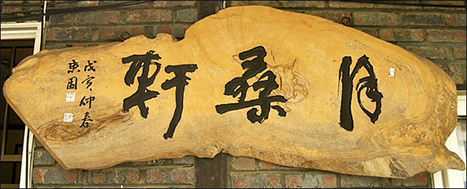 月桑軒
戊寅仲春
東園